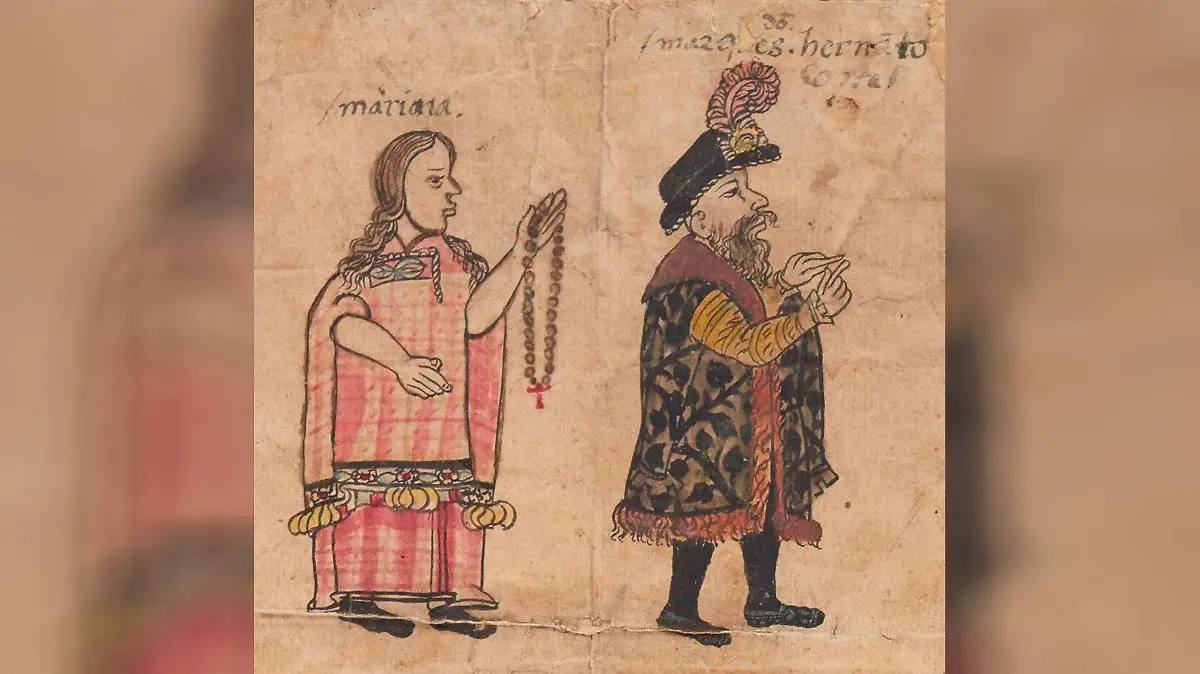 /mariana.
dō
/marq es. hernāto
Cortes